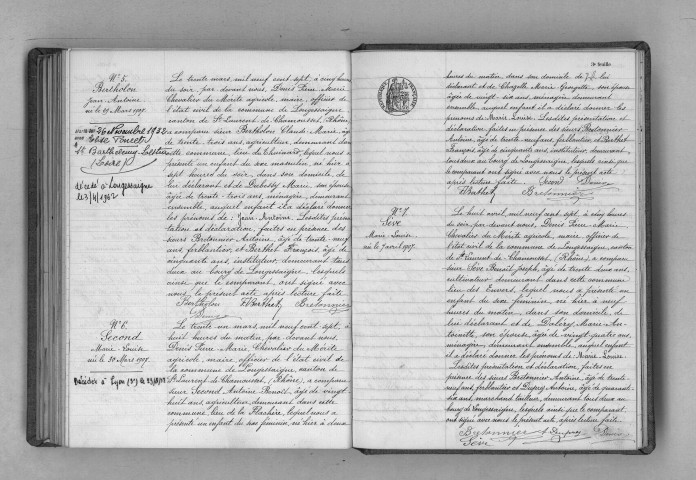 N° 5.
Bertholon
Jean Antoine
né le 29 Mars 1907.
26 Novembre 1932
St Barthélemy Lestra
(Loire)
décédé à Longessaigne
le 3/4/1962
Le trente mars, mil neuf cent sept, à cinq heures
du soir, par devant nous, Denis Pierre Marie
Chevalier du Mérite agricole, maire, officier de
l'état civil de la commune de Longessaigne
canton de St Laurent de Chamousset, (Rhône)
a comparu sieur Bertholon Claude Marie, âgé
de trente trois ans, agriculteur, demeurant dans
cette commune, lieu de lequel nous a
présenté un enfant du sexe masculin, né hier à
sept heures du soir, dans son domicile, de
lui déclarant et de Dubessy Marie, son épouse
âgée de trente-trois ans, ménagère, demeurant
ensemble, auquel enfant il a déclaré donner
les prénoms de: Jean Antoine. Lesdites présen-
tation et déclaration, faites en présence des
sieurs Bretonnier Antoine, âgé de trente-neuf
ans, ferblantier, et Berthet François, âgé de
cinquante ans, instituteur, demeurant tous
deux au bourg de Longessaigne, lesquels
ainsi que le comparant, ont signé avec
nous, le présent acte après lecture faite.
Bertholon FBerthet Bretonnier
Denis
N° 6.
Second
Marie Louise
née le 30 Mars 1907.
Décédée à Lyon
Le trente un mars, mil neuf cent sept, à
huit heures du matin, par devant nous,
Denis Pierre Marie, Chevalier du Mérite
agricole, maire, officier de l'état civil de
la commune de Longessaigne, canton de
St Laurent de Chamousset, (Rhône), a comparu
sieur Second Antoine Benoît, âgé de vingt
huit ans, agriculteur, demeurant dans cette
commune, lieu de la lequel nous a
présenté un enfant du sexe féminin, né hier à deux
feuille
heures du matin, dans son domicile, de lui
déclarant et de Chazelle Marie son épouse
âgée de vingt six ans, ménagère, demeurant
ensemble, auquel enfant il a déclaré donner les
prénoms de Marie Louise. Lesdites présentation et
déclaration, faites en présence des sieurs Bretonnier
Antoine, âgé de trente neuf ans, ferblantier et Berthet
François âgé de cinquante ans instituteur, demeurant
tous deux au bourg de Longessaigne, lesquels ainsi que
le comparant ont signé avec nous le présent acte
après lecture faite. Second Denis
FBerthet Bretonnier
N° 7.
Sève
Marie Louise
née le 7 avril 1907.
Le huit avril, mil neuf cent sept, à cinq heures
du soir, par devant nous, Denis Pierre Marie
Chevalier du Mérite agricole, maire officier de
l'état civil de la commune de Longessaigne, canton
de St Laurent de Chamousset, (Rhône) a comparu
sieur Sève Benoît Joseph, âgé de trente deux ans,
cultivateur, demeurant dans cette commune
lieu des lequel nous a présenté un
enfant du sexe féminin, né hier à neuf
heures du matin, dans son domicile, de
lui déclarant et de Marie An-
toinette, son épouse, âgée de vingt quatre ans
ménagère, demeurant ensemble, auquel enfant
il a déclaré donner les prénoms de: Marie Louise.
Lesdites présentation et déclaration, faites en
présence des sieurs Bretonnier Antoine, âgé de trente
neuf ans, ferblantier et Dupuy Antoine, âgé de quarante
six ans, marchand tailleur, demeurant tous deux au
bourg de Longessaigne, lesquels ainsi que le comparant,
ont signé avec nous le présent acte, après lecture faite.
Bretonnier A Dupuy Denis
Sève